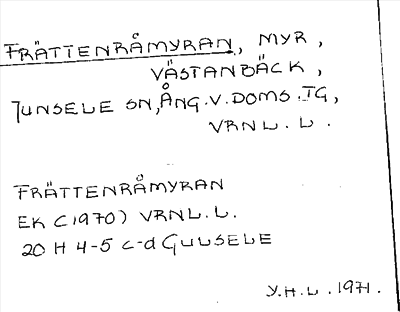 FRÄTTENRÅMYRAN, MYR,
VÄSTANBÄCK,
JUNSELE SN, ÅNG.V.DOMS.TG,
VRNL.L.
FRÄTTENRÅMYRAN
EK (1970) VRNL.L.
20 H 4-5 c-d GULSELE
Y.H.L.1971.